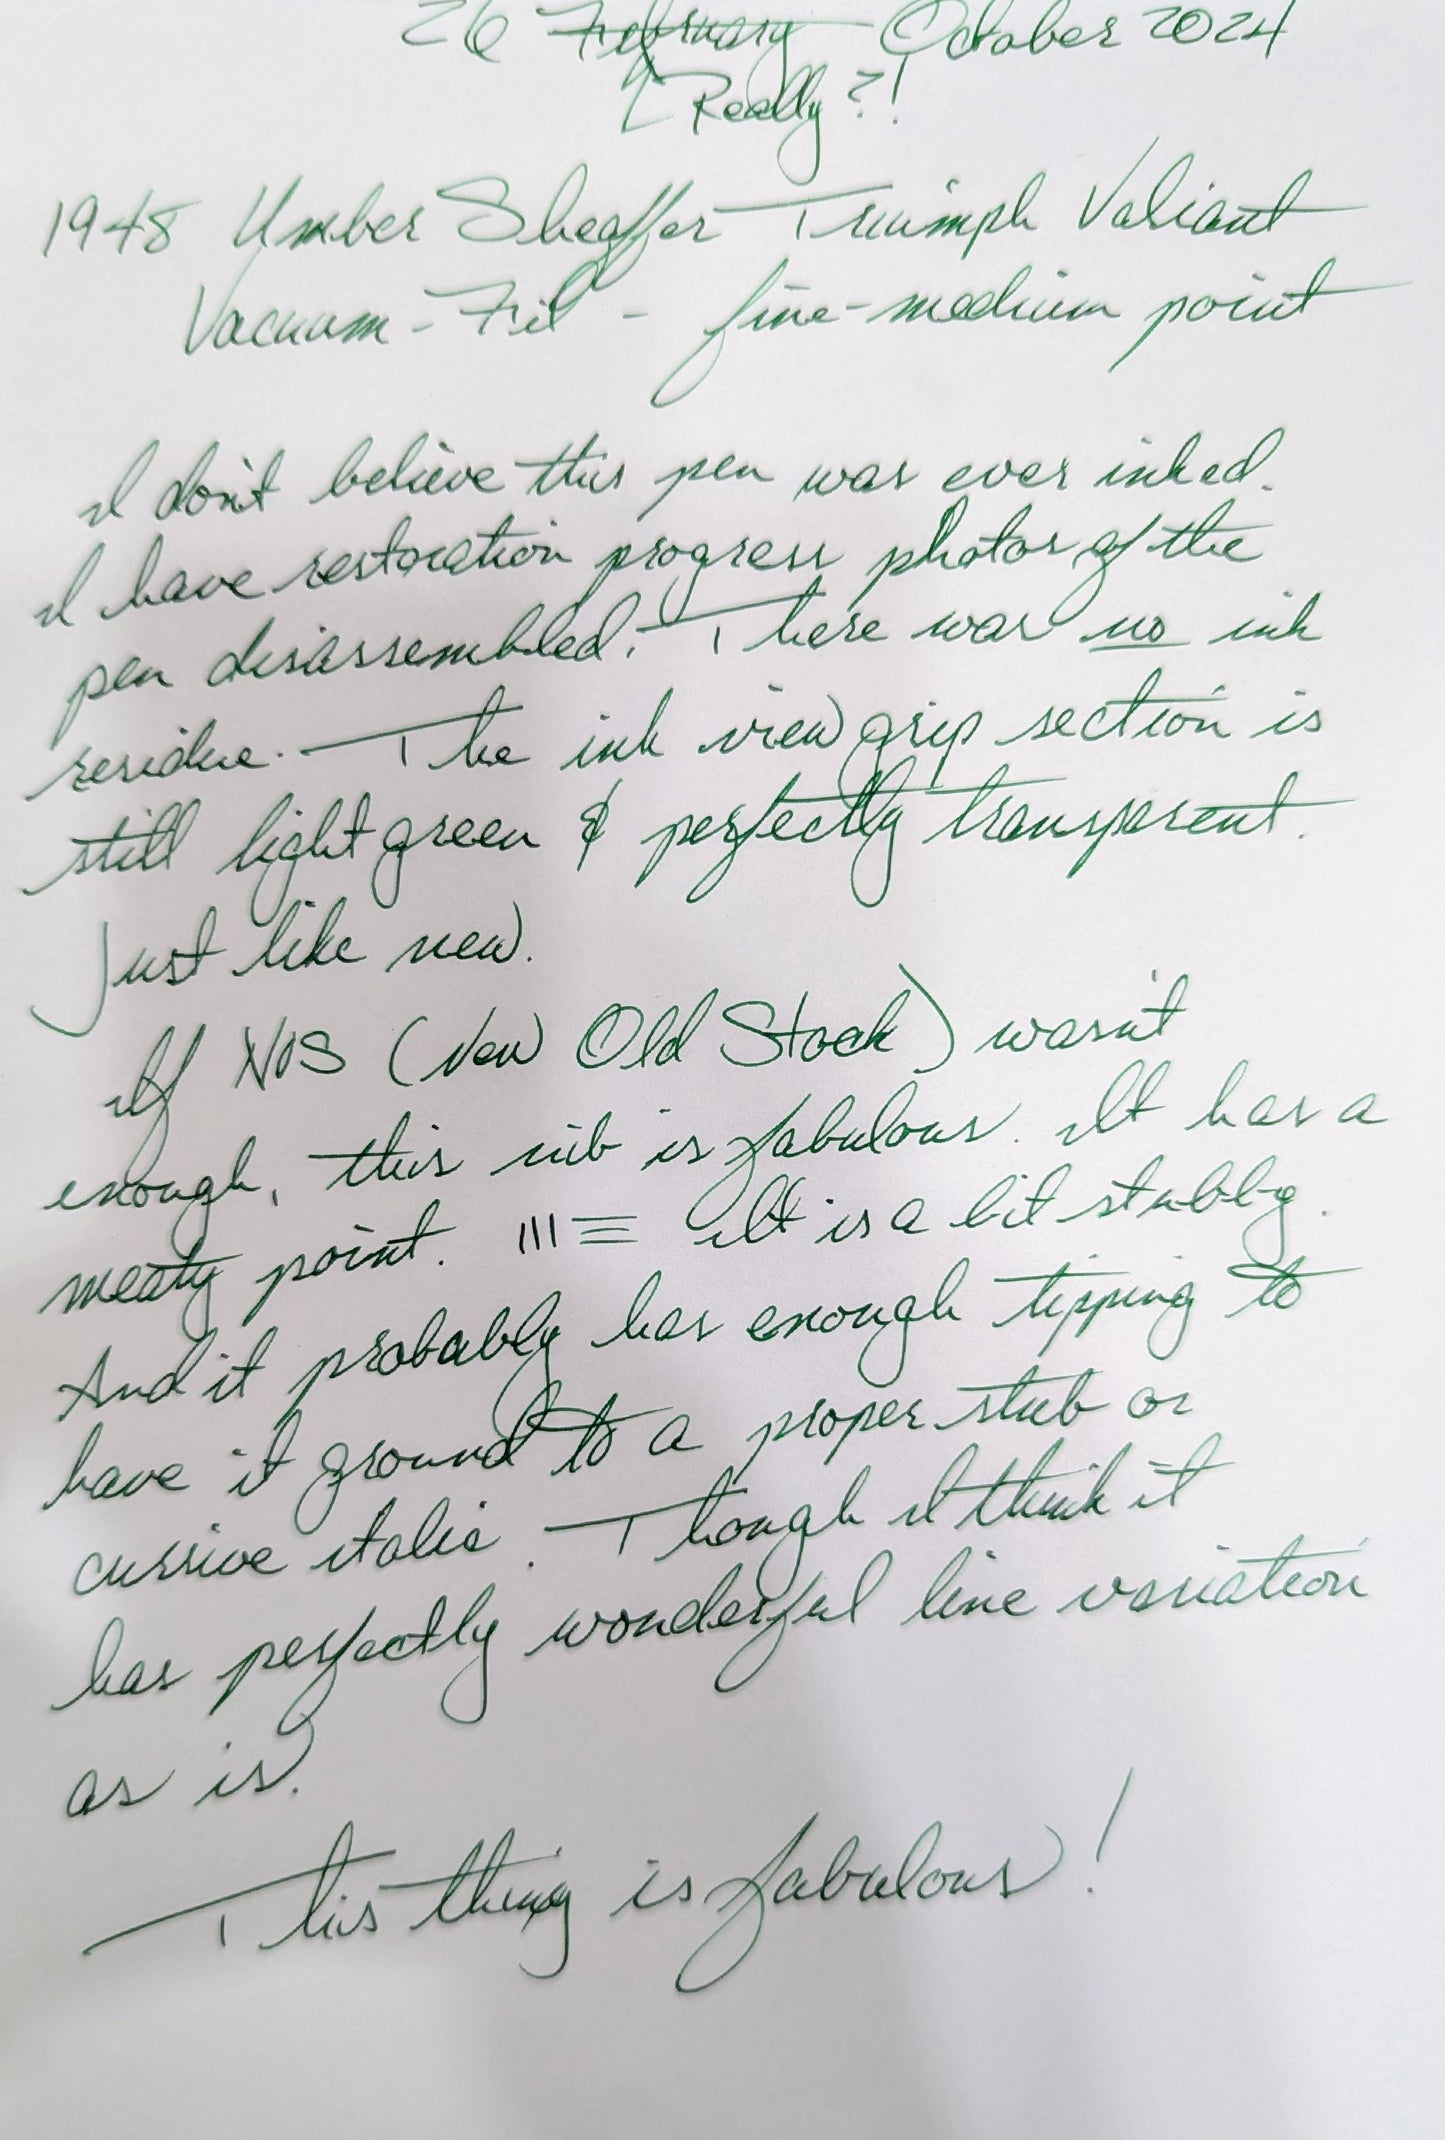 26 February October 2024
Really?!
1948 Umber Sheaffer Triumph Valiant
Vacuum-Fil - fine-medium point
I don't believe this pen was ever inked.
I have restoration progress photos of the
pen disassembled. There was no ink
residue. The ink view grip section is
still light green & perfectly transparent.
Just like new.
If NOS (New Old Stock) wasn't
enough, this nib is fabulous. It has a
meaty point. ||| ≡ It is a bit stubby.
And it probably has enough tipping to
have it ground to a proper stub or
cursive italic. Though I think it
has perfectly wonderful line variation
as is.
This thing is fabulous!